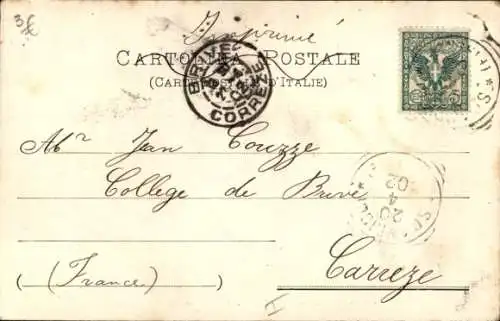 3€
Imprimé
CARTOLINA POSTALE
(CARTE POSTALE D'ITALIE)
BRIVE
CORREZE
Mr Jan Couzze
College de Brive
(France)
Carreze
20
4
02